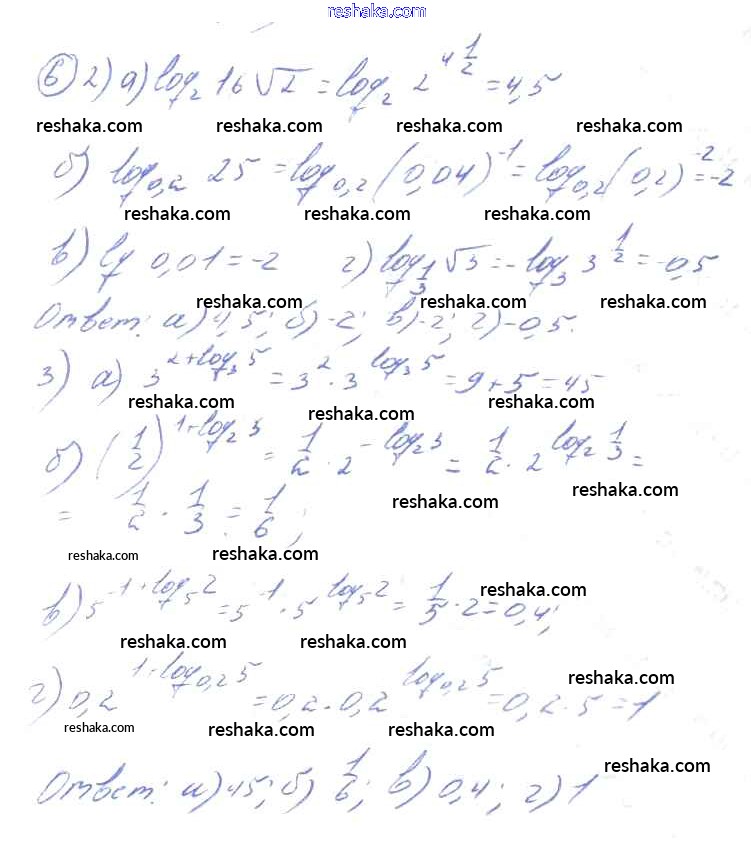 reshaka.com
⑥ 2) а) log₂ 16√2 = log₂ 2^(4 1/2) = 4,5
reshaka.com reshaka.com reshaka.com reshaka.com
б) log₀,₂ 25 = log₀,₂ (0,04)⁻¹ = log₀,₂ (0,2)⁻² = -2
reshaka.com reshaka.com reshaka.com
в) lg 0,01 = -2 г) log_(1/3) √3 = -log₃ 3^(1/2) = -0,5
reshaka.com reshaka.com reshaka.com
Ответ: а) 4,5; б) -2; в) -2; г) -0,5.
3) а) 3^(2+log₃5) = 3² · 3^(log₃5) = 9 + 5 = 45
reshaka.com reshaka.com reshaka.com
б) (1/2)^(1+log₂3) = 1/2 · 2^(-log₂3) = 1/2 · 2^(log₂ 1/3) =
reshaka.com reshaka.com
= 1/2 · 1/3 = 1/6;
reshaka.com reshaka.com
в) 5^(-1+log₅2) = 5⁻¹ · 5^(log₅2) = 1/5 · 2 = 0,4;
reshaka.com
reshaka.com reshaka.com
г) 0,2^(1+log₀,₂5) = 0,2 · 0,2^(log₀,₂5) = 0,2 · 5 = 1
reshaka.com
reshaka.com reshaka.com reshaka.com
Ответ: а) 45; б) 1/6; в) 0,4; г) 1
reshaka.com